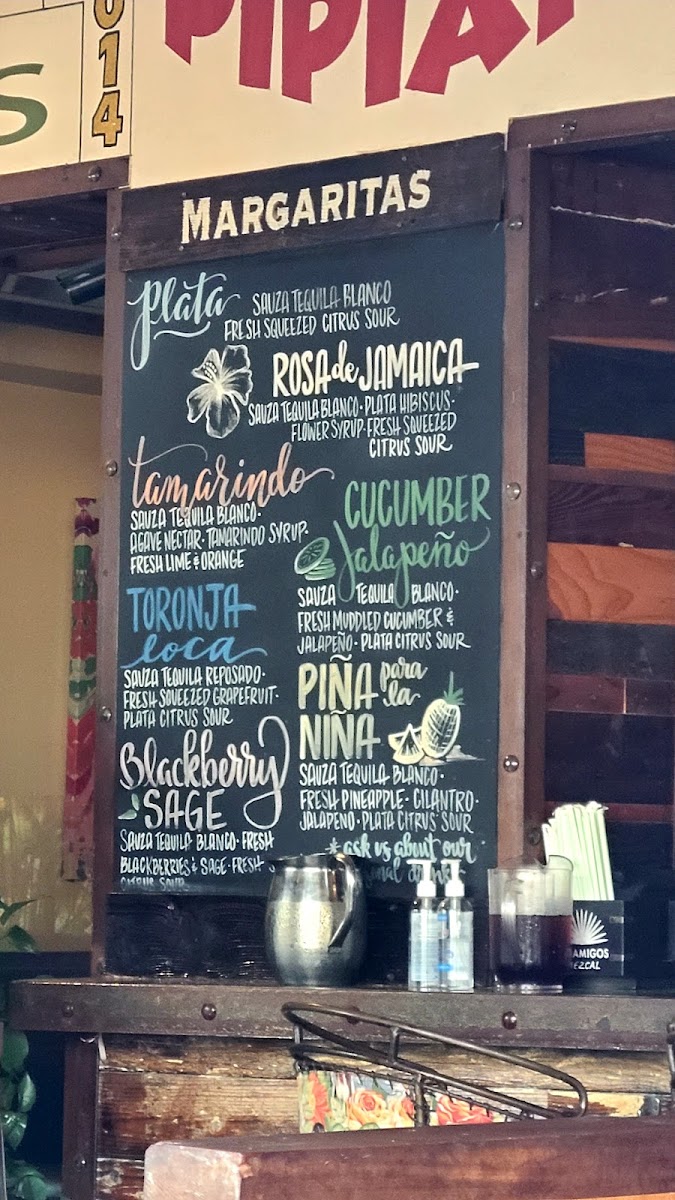 014
S
MARGARITAS
Plata
SAUZA TEQUILA BLANCO
FRESH SQUEEZED CITRUS SOUR
ROSA de JAMAICA
SAUZA TEQUILA BLANCO · PLATA HIBISCUS ·
FLOWER SYRUP · FRESH SQUEEZED
CITRUS SOUR
tamarindo
SAUZA TEQUILA BLANCO ·
AGAVE NECTAR · TAMARINDO SYRUP ·
FRESH LIME & ORANGE
CUCUMBER
Jalapeño
SAUZA TEQUILA BLANCO ·
FRESH MUDDLED CUCUMBER &
JALAPEÑO · PLATA CITRUS SOUR
TORONJA
loca
SAUZA TEQUILA REPOSADO ·
FRESH SQUEEZED GRAPEFRUIT ·
PLATA CITRUS SOUR
PIÑA para
la
NIÑA
SAUZA TEQUILA BLANCO ·
FRESH PINEAPPLE · CILANTRO ·
JALAPENO · PLATA CITRUS SOUR
Blackberry
SAGE
SAUZA TEQUILA BLANCO · FRESH
BLACKBERRIES & SAGE · FRESH S
CITRUS SOUR
*ask us about our
AMIGOS
EZCAL